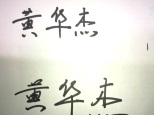 黄华杰
黄华木